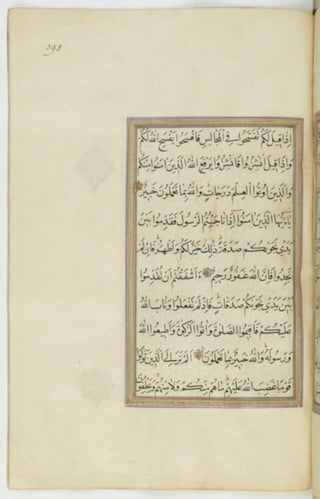 398
إِذَا قِيلَ لَكُمْ تَفَسَّحُوا فِي الْمَجَالِسِ فَافْسَحُوا يَفْسَحِ اللهُ لَكُمْ
وَإِذَا قِيلَ انْشُزُوا فَانْشُزُوا يَرْفَعِ اللهُ الَّذِينَ آمَنُوا مِنْكُمْ
وَالَّذِينَ أُوتُوا الْعِلْمَ دَرَجَاتٍ وَاللهُ بِمَا تَعْمَلُونَ خَبِيرٌ
يَا أَيُّهَا الَّذِينَ آمَنُوا إِذَا نَاجَيْتُمُ الرَّسُولَ فَقَدِّمُوا بَيْنَ
يَدَيْ نَجْوَاكُمْ صَدَقَةً ذَلِكَ خَيْرٌ لَكُمْ وَأَطْهَرُ فَإِنْ لَمْ
تَجِدُوا فَإِنَّ اللهَ غَفُورٌ رَحِيمٌ ءَأَشْفَقْتُمْ أَنْ تُقَدِّمُوا
بَيْنَ يَدَيْ نَجْوَاكُمْ صَدَقَاتٍ فَإِذْ لَمْ تَفْعَلُوا وَتَابَ اللهُ
عَلَيْكُمْ فَأَقِيمُوا الصَّلَوٰةَ وَآتُوا الزَّكَوٰةَ وَأَطِيعُوا اللهَ
وَرَسُولَهُ وَاللهُ خَبِيرٌ بِمَا تَعْمَلُونَ أَلَمْ تَرَ إِلَى الَّذِينَ تَوَلَّوْا
قَوْمًا غَضِبَ اللهُ عَلَيْهِمْ مَا هُمْ مِنْكُمْ وَلَا مِنْهُمْ وَيَحْلِفُونَ